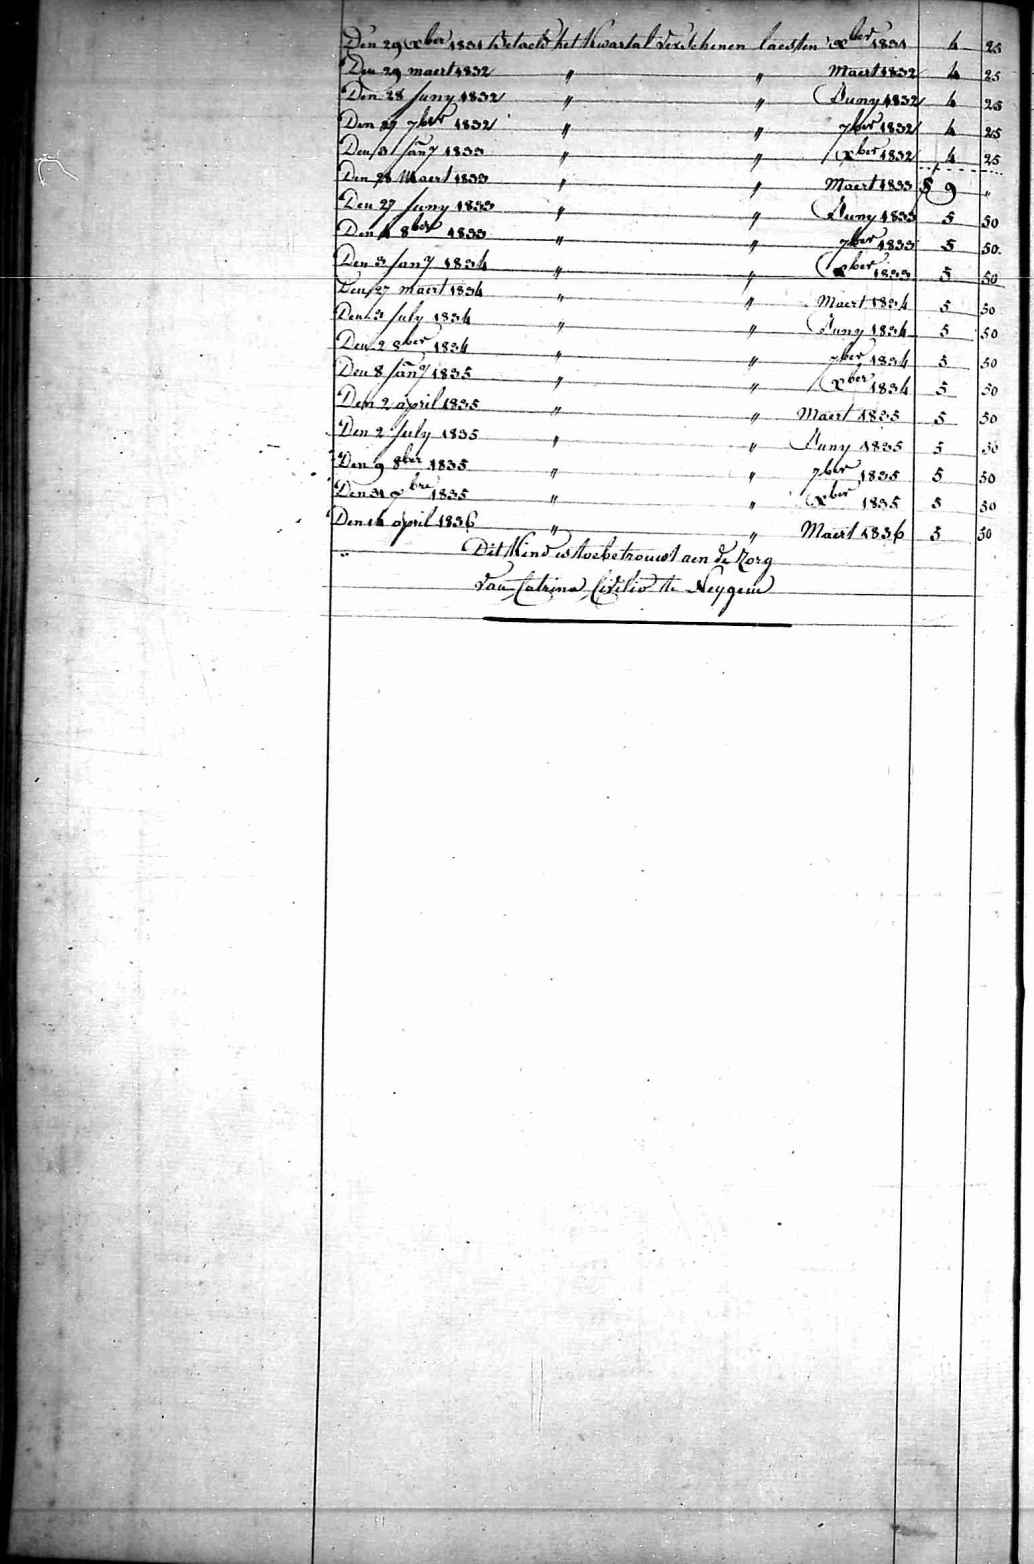 Den 29 Xber 1831 betaeld het Kwartal verschenen laesten Xber 1831 4 25
Den 29 maert 1832 " " Maert 1832 4 25
Den 28 Juny 1832 " " Juny 1832 4 25
Den 27 7ber 1832 " " 7ber 1832 4 25
Den 31 Jany 1833 " " Xber 1832 4 25
Den 28 Maert 1833 " " Maert 1833 9 "
Den 27 Juny 1833 " " Juny 1833 5 50
Den 1 8ber 1833 " " 7ber 1833 5 50
Den 3 Jany 1834 " " Xber 1833 5 50
Den 27 maert 1834 " " Maert 1834 5 50
Den 3 July 1834 " " Juny 1834 5 50
Den 2 8ber 1834 " " 7ber 1834 5 50
Den 8 Jany 1835 " " Xber 1834 5 50
Den 2 april 1835 " " Maert 1835 5 50
Den 2 July 1835 " " Juny 1835 5 50
Den 9 8ber 1835 " " 7ber 1835 5 50
Den 31 bre 1835 " " Xber 1835 5 50
Den april 1836 " " Maert 1836 5 50
Dit Kind is toebetrouwt aen de Zorg
van Catrina te Neygem